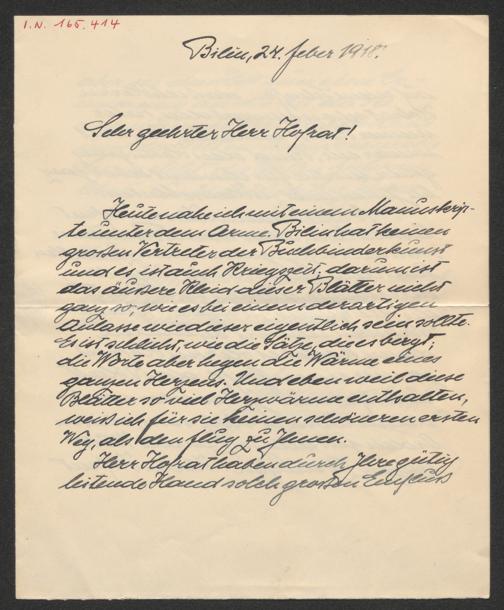 I.N. 165.414
Bilin, 24. feber 1918.
Sehr geehrter Herr Hofrat!
Heute nahe ich mit einem Manuskrip-
te unter dem Arme. Bilin hat keinen
großen Vertreter der Buchbinderkunst
und es ist auch Kriegszeit, darum ist
das äussere Kleid dieser Blätter nicht
ganz so, wie es bei einem derartigen
Anlasse wie dieser eigentlich sein sollte.
Es ist schlicht, wie die Sätze, die es birgt,
die Worte aber hegen die Wärme eines
ganzen Herzens. Und eben weil diese
Blätter so viel Herzwärme enthalten,
weiß ich für sie keinen schöneren ersten
Weg, als den flug zu Ihnen.
Herr Hofrat haben durch Ihre gütig
leitende Hand solch großen Einfluss